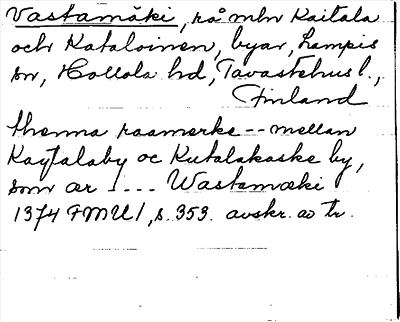 Vastamäki, rå mln Kaitala
och Kataloinen, byar, Lampis
sn, Hollola hd, Tavastehus l.,
Finland
thenna raamerke -- mellan
Kaytalaby oc Kutalakaske by,
som ær ---- Wastamæki
1374 FMU 1, s. 353. avskr. av tr.